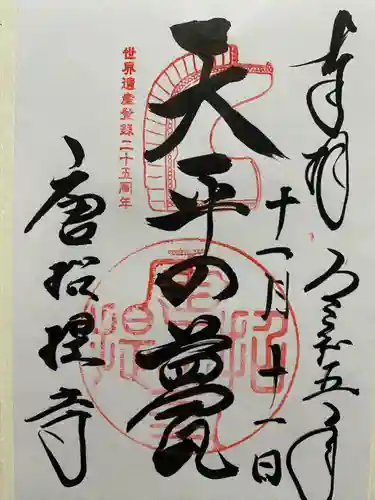 奉拝
令和五年
十一月十一日
天平の甍
世界遺産登録二十五周年
唐招提寺